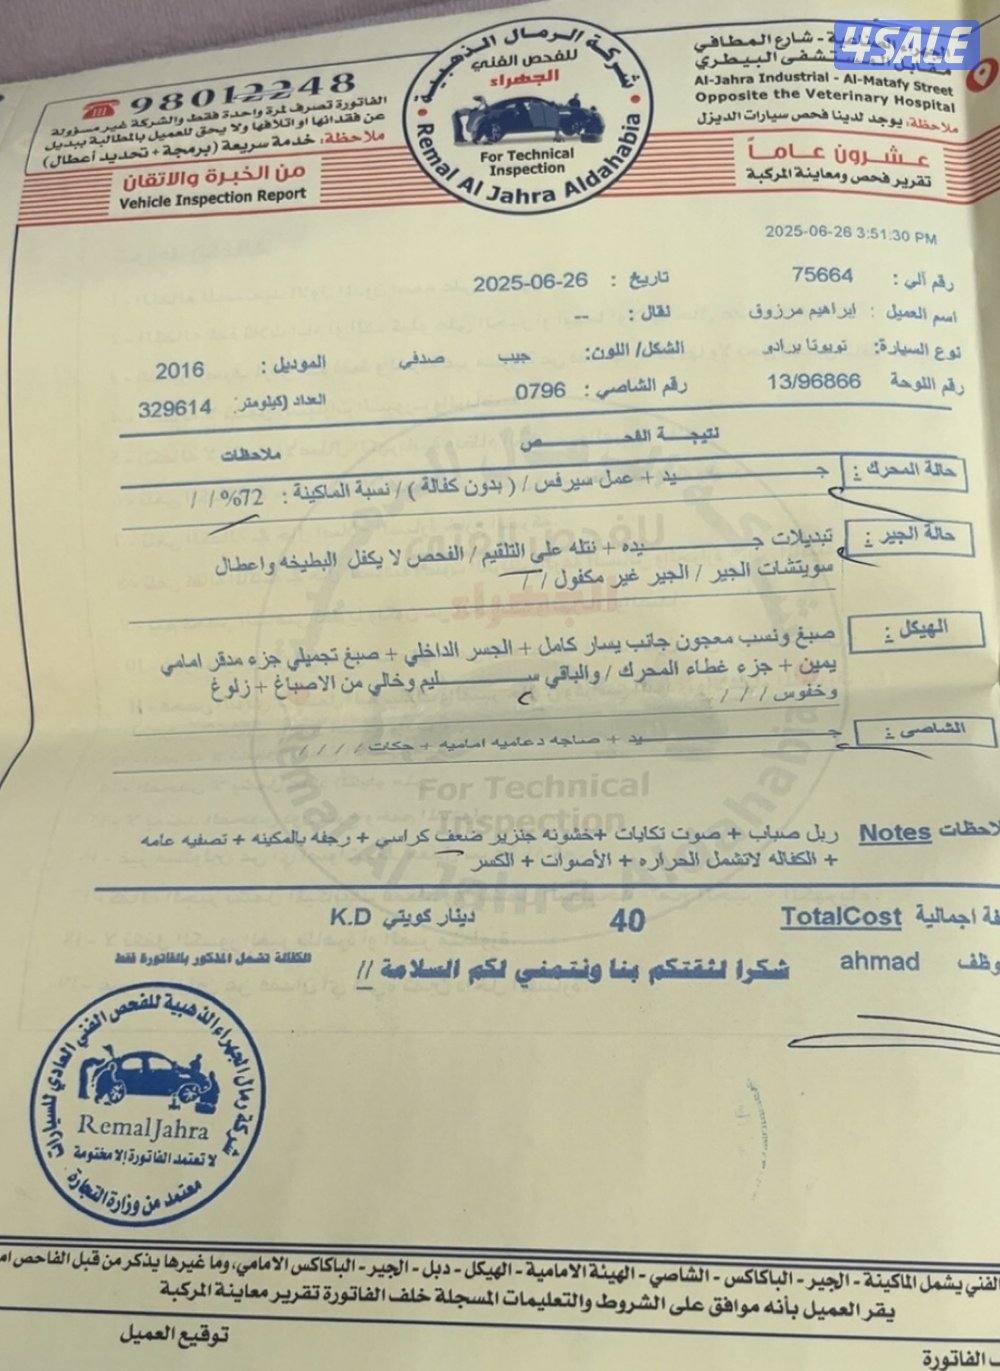 4SALE
الجهراء الصناعية - شارع المطافي
مقابل المستشفى البيطري
Al-Jahra Industrial - Al-Matafy Street
Opposite the Veterinary Hospital
ملاحظة: يوجد لدينا فحص سيارات الديزل
عشرون عاماً
تقرير فحص ومعاينة المركبة
شركة الرمال الذهبية
للفحص الفني
الجهراء
For Technical
Inspection
Remal Al Jahra Aldahabia
98012248
الفاتورة تصرف لمرة واحدة فقط والشركة غير مسؤولة
عن فقدانها او اتلافها ولا يحق للعميل بالمطالبة ببديل
ملاحظة: خدمة سريعة (برمجة + تحديد أعطال)
من الخبرة والاتقان
Vehicle Inspection Report
2025-06-26 3:51:30 PM
رقم آلي : 75664 تاريخ : 2025-06-26
اسم العميل : ابراهيم مرزوق نقال : --
نوع السيارة: تويوتا برادو الشكل/ اللون: جيب صدفي الموديل : 2016
رقم اللوحة 13/96866 رقم الشاصي : 0796 العداد (كيلومتر: 329614
نتيجة الفحص ملاحظات
حالة المحرك : جيد + عمل سيرفس / ( بدون كفالة ) / نسبة الماكينة : 72% / /
حالة الجير : تبديلات جيده + نتله على التلقيم / الفحص لا يكفل البطيخه واعطال
سويتشات الجير / الجير غير مكفول / /
الهيكل : صبغ ونسب معجون جانب يسار كامل + الجسر الداخلي + صبغ تجميلي جزء مدقر امامي
يمين + جزء غطاء المحرك / والباقي سليم وخالي من الاصباغ + زلوغ
وخفوس / / /
الشاصي : جيد + صاجه دعاميه اماميه + حكات / / / /
For Technical
Inspection
لاحظات Notes ربل صباب + صوت تكايات +خشونه جنزير ضعف كراسي + رجفه بالمكينه + تصفيه عامه
+ الكفاله لاتشمل الحراره + الأصوات + الكسر
فة اجمالية TotalCost 40 دينار كويتي K.D
وظف ahmad شكرا لثقتكم بنا ونتمنى لكم السلامة // الكفالة تشمل المذكور بالفاتورة فقط
شركة رمال الجهراء الذهبية للفحص الفني العادي للسيارات
RemalJahra
لا تعتمد الفاتورة إلا مختومة
معتمد من وزارة التجارة
الفني يشمل الماكينة - الجير - الباكاكس - الشاصي - الهيئة الامامية - الهيكل - دبل - الجير - الباكاكس الامامي، وما غيرها يذكر من قبل الفاحص
يقر العميل بأنه موافق على الشروط والتعليمات المسجلة خلف الفاتورة تقرير معاينة المركبة
توقيع العميل
ب الفاتورة